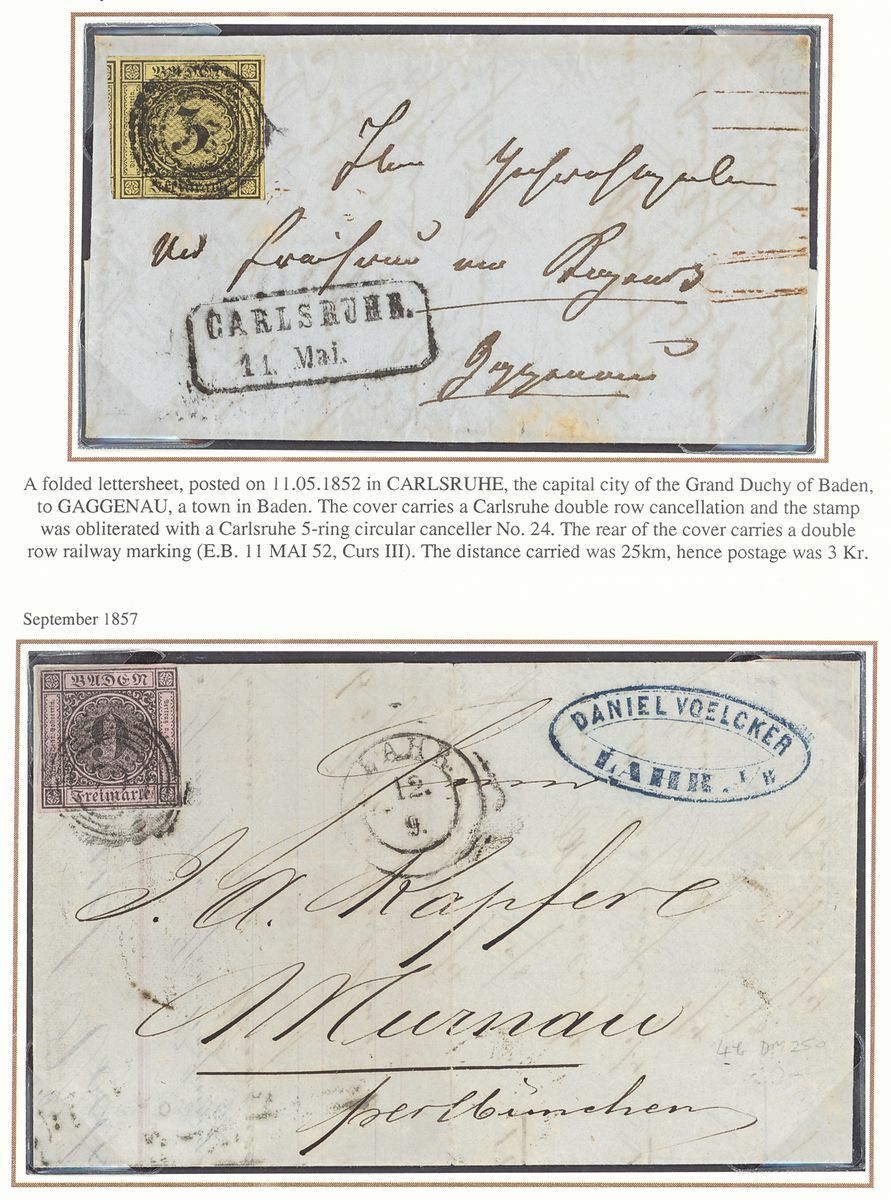 BADEN
3
Freimarke
CARLSRUHE.
11. Mai.
Gaggenau
A folded lettersheet, posted on 11.05.1852 in CARLSRUHE, the capital city of the Grand Duchy of Baden,
to GAGGENAU, a town in Baden. The cover carries a Carlsruhe double row cancellation and the stamp
was obliterated with a Carlsruhe 5-ring circular canceller No. 24. The rear of the cover carries a double
row railway marking (E.B. 11 MAI 52, Curs III). The distance carried was 25km, hence postage was 3 Kr.
September 1857
BADEN
9
Freimarke
LAHR
12.
9.
DANIEL VOELCKER
LAHR. I/B
Herrn
J. A. Kapferc
Murnau
per München
46 DM 250